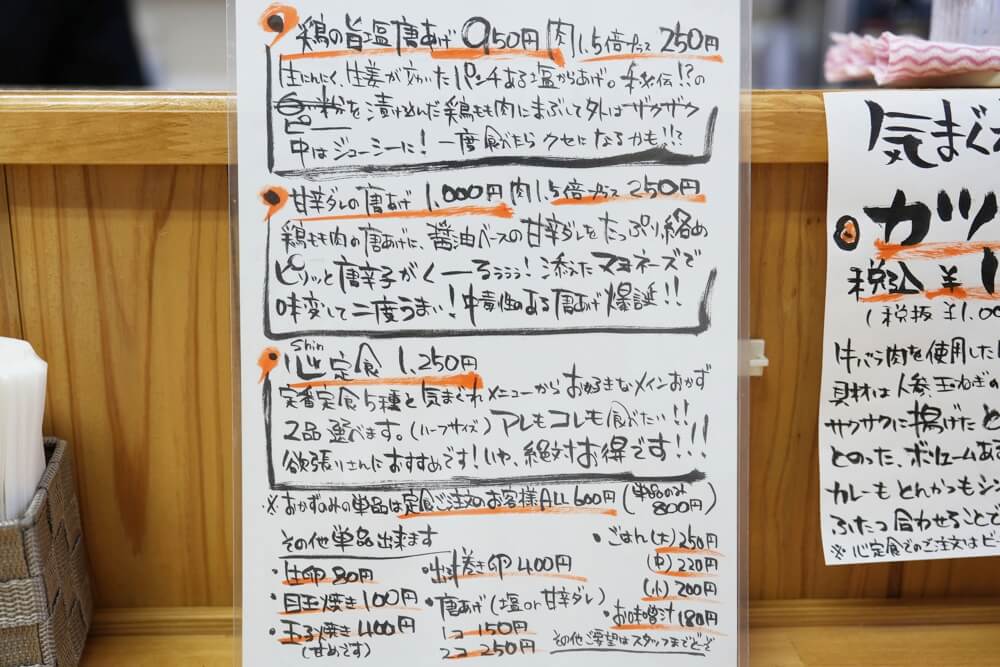 鶏の旨塩唐あげ 950円 肉1.5倍プラス 250円
生にんにく、生姜が効いたパンチある塩からあげ。秘伝!?の
粉を漬け込んだ鶏もも肉にまぶして外はザクザク
中はジューシーに!一度食べたらクセになるかも!!?
甘辛ダレの唐あげ 1,000円 肉1.5倍プラス 250円
鶏もも肉の唐あげに、醤油ベースの甘辛ダレをたっぷり絡め
ピリッと唐辛子がくーるぅぅぅ!添えたマヨネーズで
味変して二度うまい!中毒性のある唐あげ爆誕!!
Shin
心定食 1,250円
定番定食5種と気まぐれメニューからお好きなメインおかず
2品選べます。(ハーフサイズ)アレもコレも食べたい!!
欲張りさんにおすすめです!いや、絶対お得です!!!
※おかずのみの単品は定食ご注文のお客様ALL600円(単品のみ800円)
その他単品出来ます
・生卵 80円
・目玉焼き 100円
・玉子焼き 400円
(甘めです)
・出汁巻き卵 400円
・唐あげ(塩or甘辛ダレ)
1コ 150円
2コ 250円
・ごはん(大)250円
(中)220円
(小)200円
・お味噌汁 180円
その他ご要望はスタッフまでどうぞ
気まぐ
カツ
税込 ¥1
(税抜 ¥1,00
牛バラ肉を使用した
具材は人参、玉ねぎの
サクサクに揚げたと
とのった、ボリュームあ
カレーもとんかつもシ
ふたつ合わせることで
※心定食でのご注文はビ